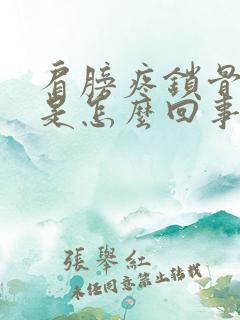 肩膀疼鎖骨
是怎麼回事
張舉紅
未经同意禁止转载